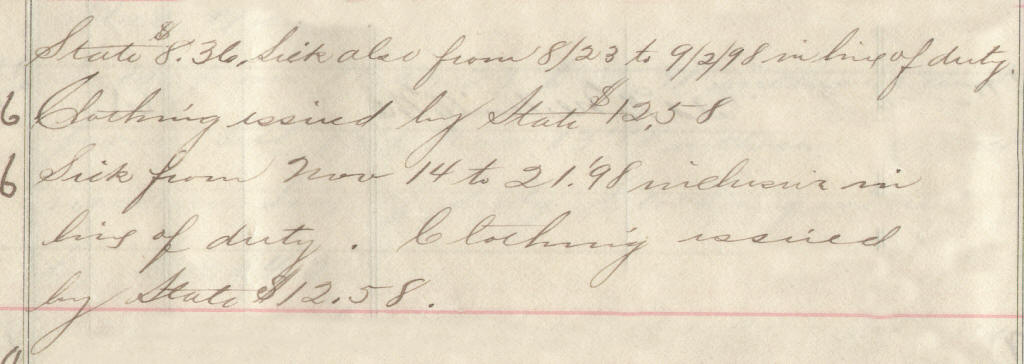 State $8.36, Sick also from 8/23 to 9/2/98 in line of duty.
6 Clothing issued by State $12.58
6 Sick from Nov 14 to 21.'98 inclusive in
line of duty. Clothing issued
by State $12.58.